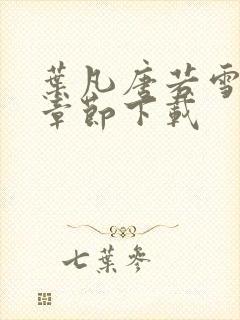 葉凡唐若雪
章節下載
七葉參